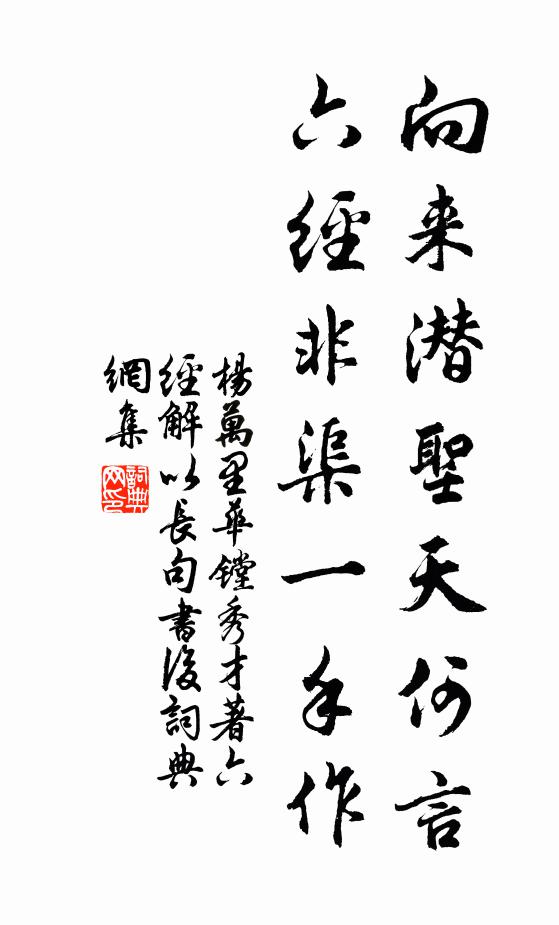 向来潜聖天何言
六經非渠一手作
楊萬里華鏜秀才著六
經解以長句書後詞典
網集
詞典
网印